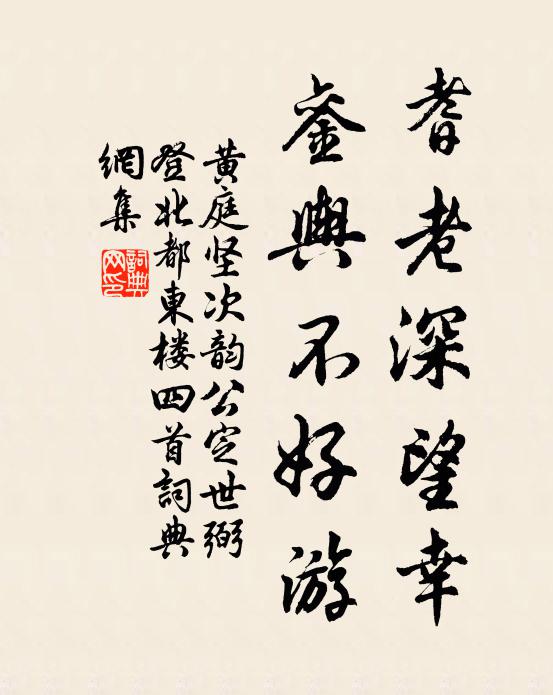 耆老深望幸
銮輿不好游
黄庭坚次韵公定世弼
登北都東楼四首詞典
網集
詞典
网印